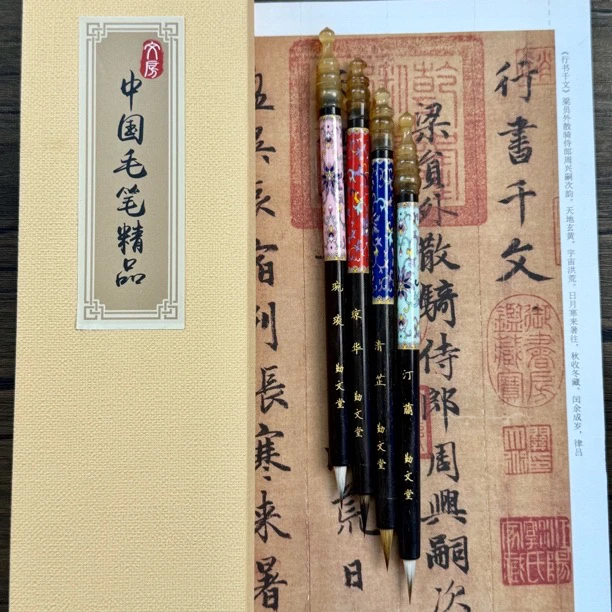 文房
中国毛笔精品
行書千文
梁員外散騎侍郎周興嗣次
荒日
昃辰宿列張寒来暑
《行书千文》梁员外散骑侍郎周兴嗣次韵。天地玄黄，宇宙洪荒。日月寒来暑往，秋收冬藏。闰余成岁，律吕
琬琰 勋文堂
琼华 勋文堂
清芷 勋文堂
汀蘭 勋文堂
御書房鑑藏寶